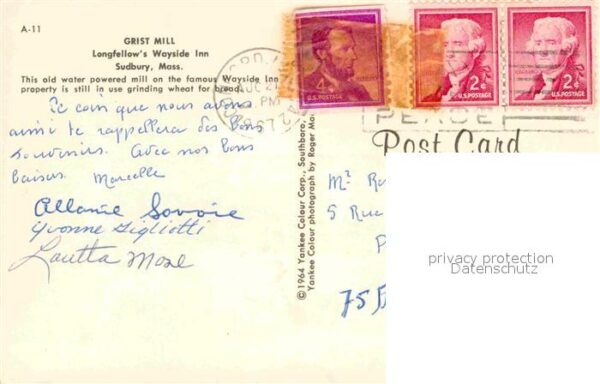 A-11
GRIST MILL
Longfellow's Wayside Inn
Sudbury, Mass.
This old water powered mill on the famous Wayside Inn
property is still in use grinding wheat for bread.
Ce coin que nous avons
aimé te rappellera des bons
souvenirs. Avec nos bons
baisers Marcelle
Allanie Savoie
Yvonne Gigliotti
Loretta Morse
© 1964 Yankee Colour Corp., Southboro,
Yankee Colour photograph by Roger
U.S. POSTAGE
2¢
U.S. POSTAGE
2¢
U.S. POSTAGE
PM
PEACE
Post Card
Mr
5 Rue
75
privacy protection
Datenschutz